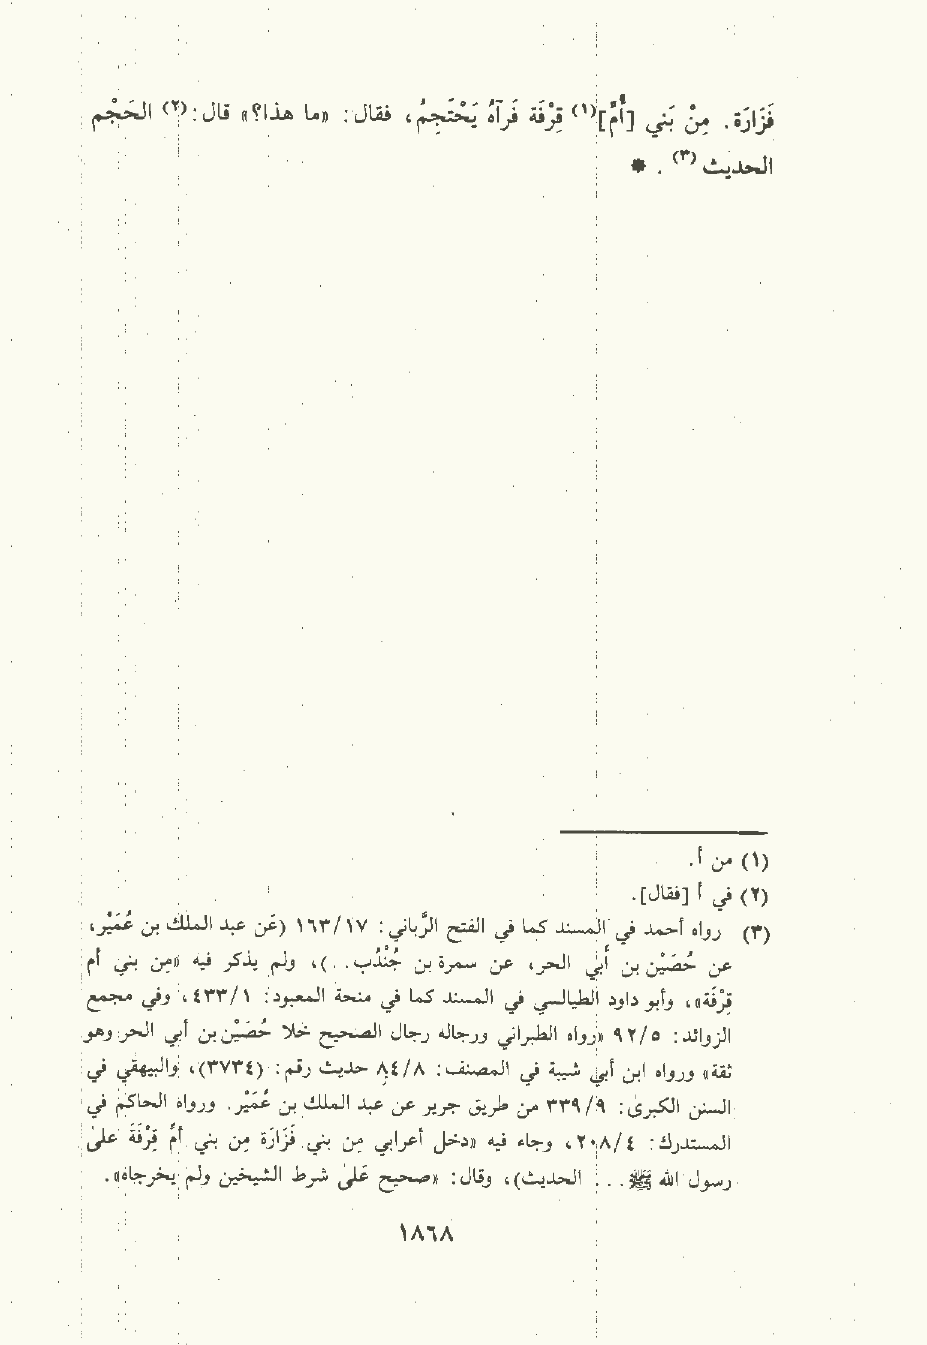 فَزَارَة. مِنْ بَني [أُمِّ]⁽¹⁾ قِرْفَة فَرآهُ يَحْتَجِمُ، فقال: «ما هذا؟» قال:⁽²⁾ الحَجْم
الحديث ⁽³⁾ . *
(١) من أ.
(٢) في أ [فقال].
(٣) رواه أحمد في المسند كما في الفتح الرَّباني: ١٦٣/١٧ (عَن عبد الملك بن عُمَيْر،
عن حُصَيْن بن أبي الحر، عن سمرة بن جُنْدُب. .)، ولم يذكر فيه «مِن بني أم
قِرْفَة»، وأبو داود الطيالسي في المسند كما في منحة المعبود: ٤٣٣/١، وفي مجمع
الزوائد: ٩٢/٥ «رواه الطبراني ورجاله رجال الصحيح خلا حُصَيْن بن أبي الحر وهو
ثقة» ورواه ابن أبي شيبة في المصنف: ٨٤/٨ حديث رقم: (٣٧٣٤)، والبيهقي في
السنن الكبرىٰ: ٣٣٩/٩ من طريق جرير عن عبد الملك بن عُمَيْر. ورواه الحاكم في
المستدرك: ٢٠٨/٤، وجاء فيه «دخل أعرابي مِن بني فَزَارَة مِن بني أمِّ قِرْفَة علىٰ
رسول الله ﷺ. . . الحديث)، وقال: «صحيح عَلىٰ شرط الشيخين ولم يخرجاه».
١٨٦٨